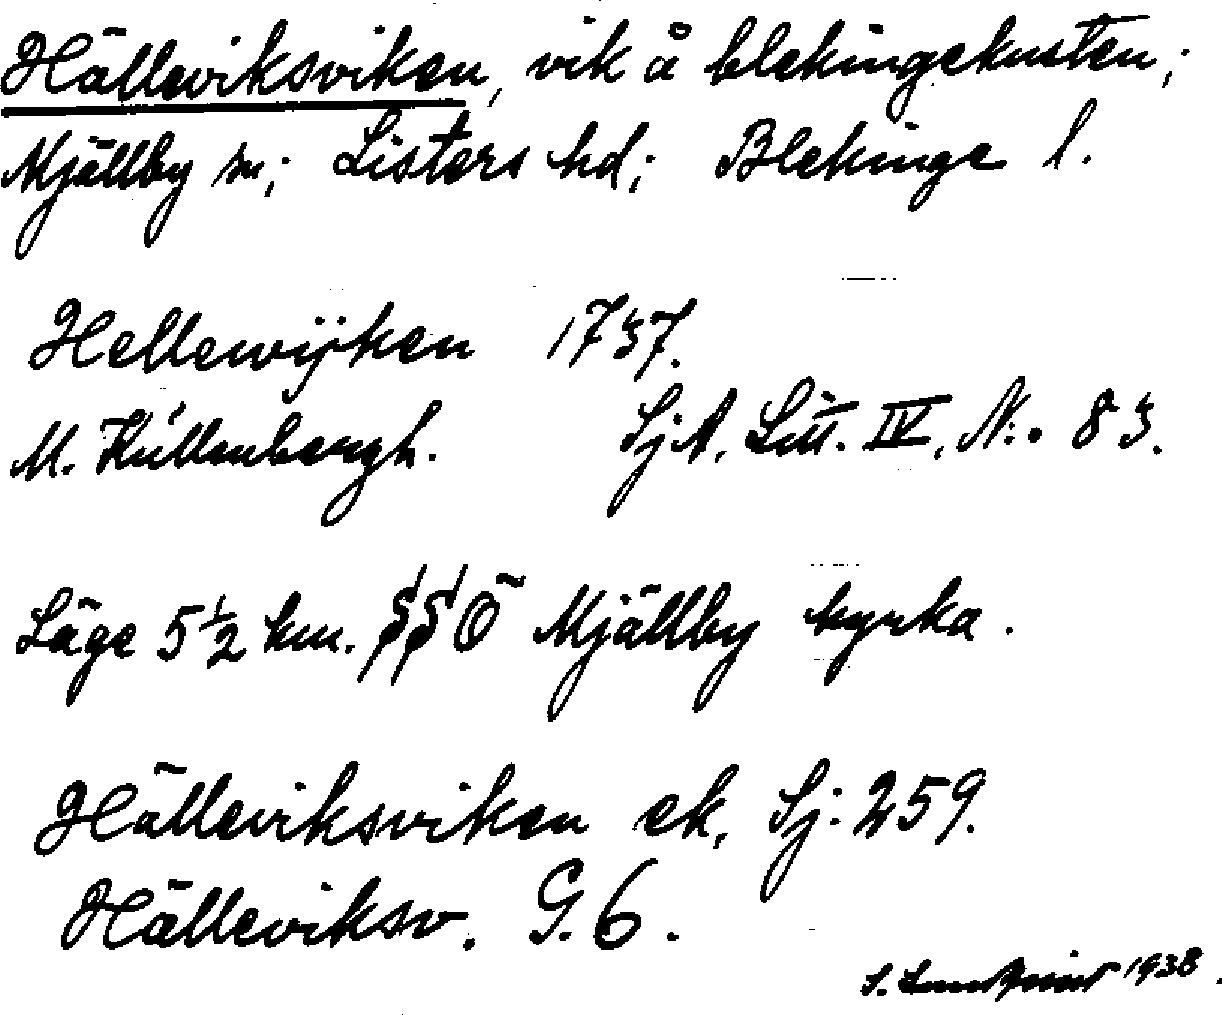 Hälleviksviken, vik å blekingekusten;
Mjällby sn; Listers hd; Blekinge l.
Hellewijken 1737.
M. Küllenbergh. SjA. Litt. IV, N:o 83.
Läge 5 1/2 km. SSÖ Mjällby kyrka.
Hälleviksviken ek, Sj: 259.
Hälleviksv. G. 6.
S. Lundqvist 1938.